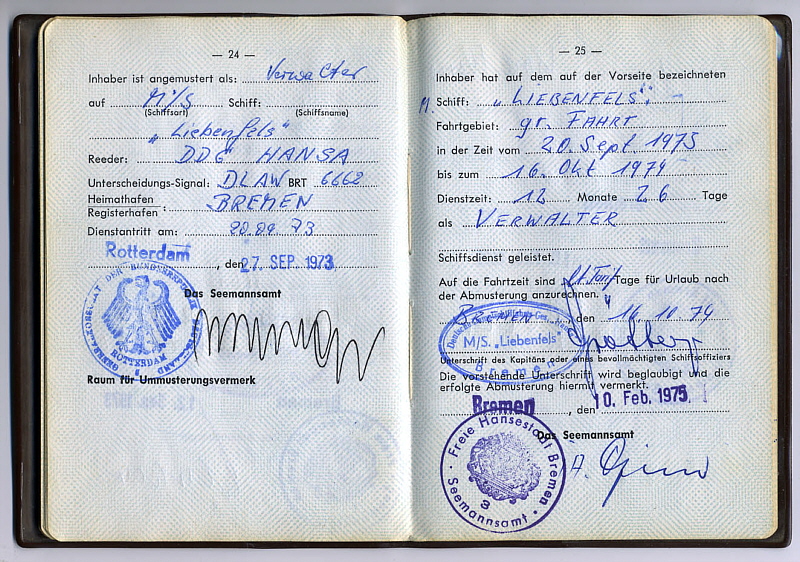 — 24 —
Inhaber ist angemustert als: Verwalter
auf M/S Schiff:
(Schiffsart) (Schiffsname)
"Liebenfels"
Reeder: DDG HANSA
Unterscheidungs-Signal: DLAW BRT 6662
Heimathafen
Registerhafen : BREMEN
Dienstantritt am: 20.09 73
Rotterdam , den 27. SEP. 1973
Das Seemannsamt
GENERALKONSULAT DER BUNDESREPUBLIK DEUTSCHLAND
ROTTERDAM
Raum für Ummusterungsvermerk
— 25 —
Inhaber hat auf dem auf der Vorseite bezeichneten
M. Schiff: "LIEBENFELS"
Fahrtgebiet: gr. FAHRT
in der Zeit vom 20. Sept. 1973
bis zum 16. Okt 1974
Dienstzeit: 12 Monate 26 Tage
als VERWALTER
Schiffsdienst geleistet.
Auf die Fahrtzeit sind lt. Tarif Tage für Urlaub nach
der Abmusterung anzurechnen.
BREMEN , den 16 10 74
M/S. „Liebenfels"
Bremen
Unterschrift des Kapitäns oder eines bevollmächtigten Schiffsoffiziers
Die vorstehende Unterschrift wird beglaubigt und die
erfolgte Abmusterung hiermit vermerkt.
Bremen , den 10. Feb. 1975
Das Seemannsamt
Freie Hansestadt Bremen
Seemannsamt
3